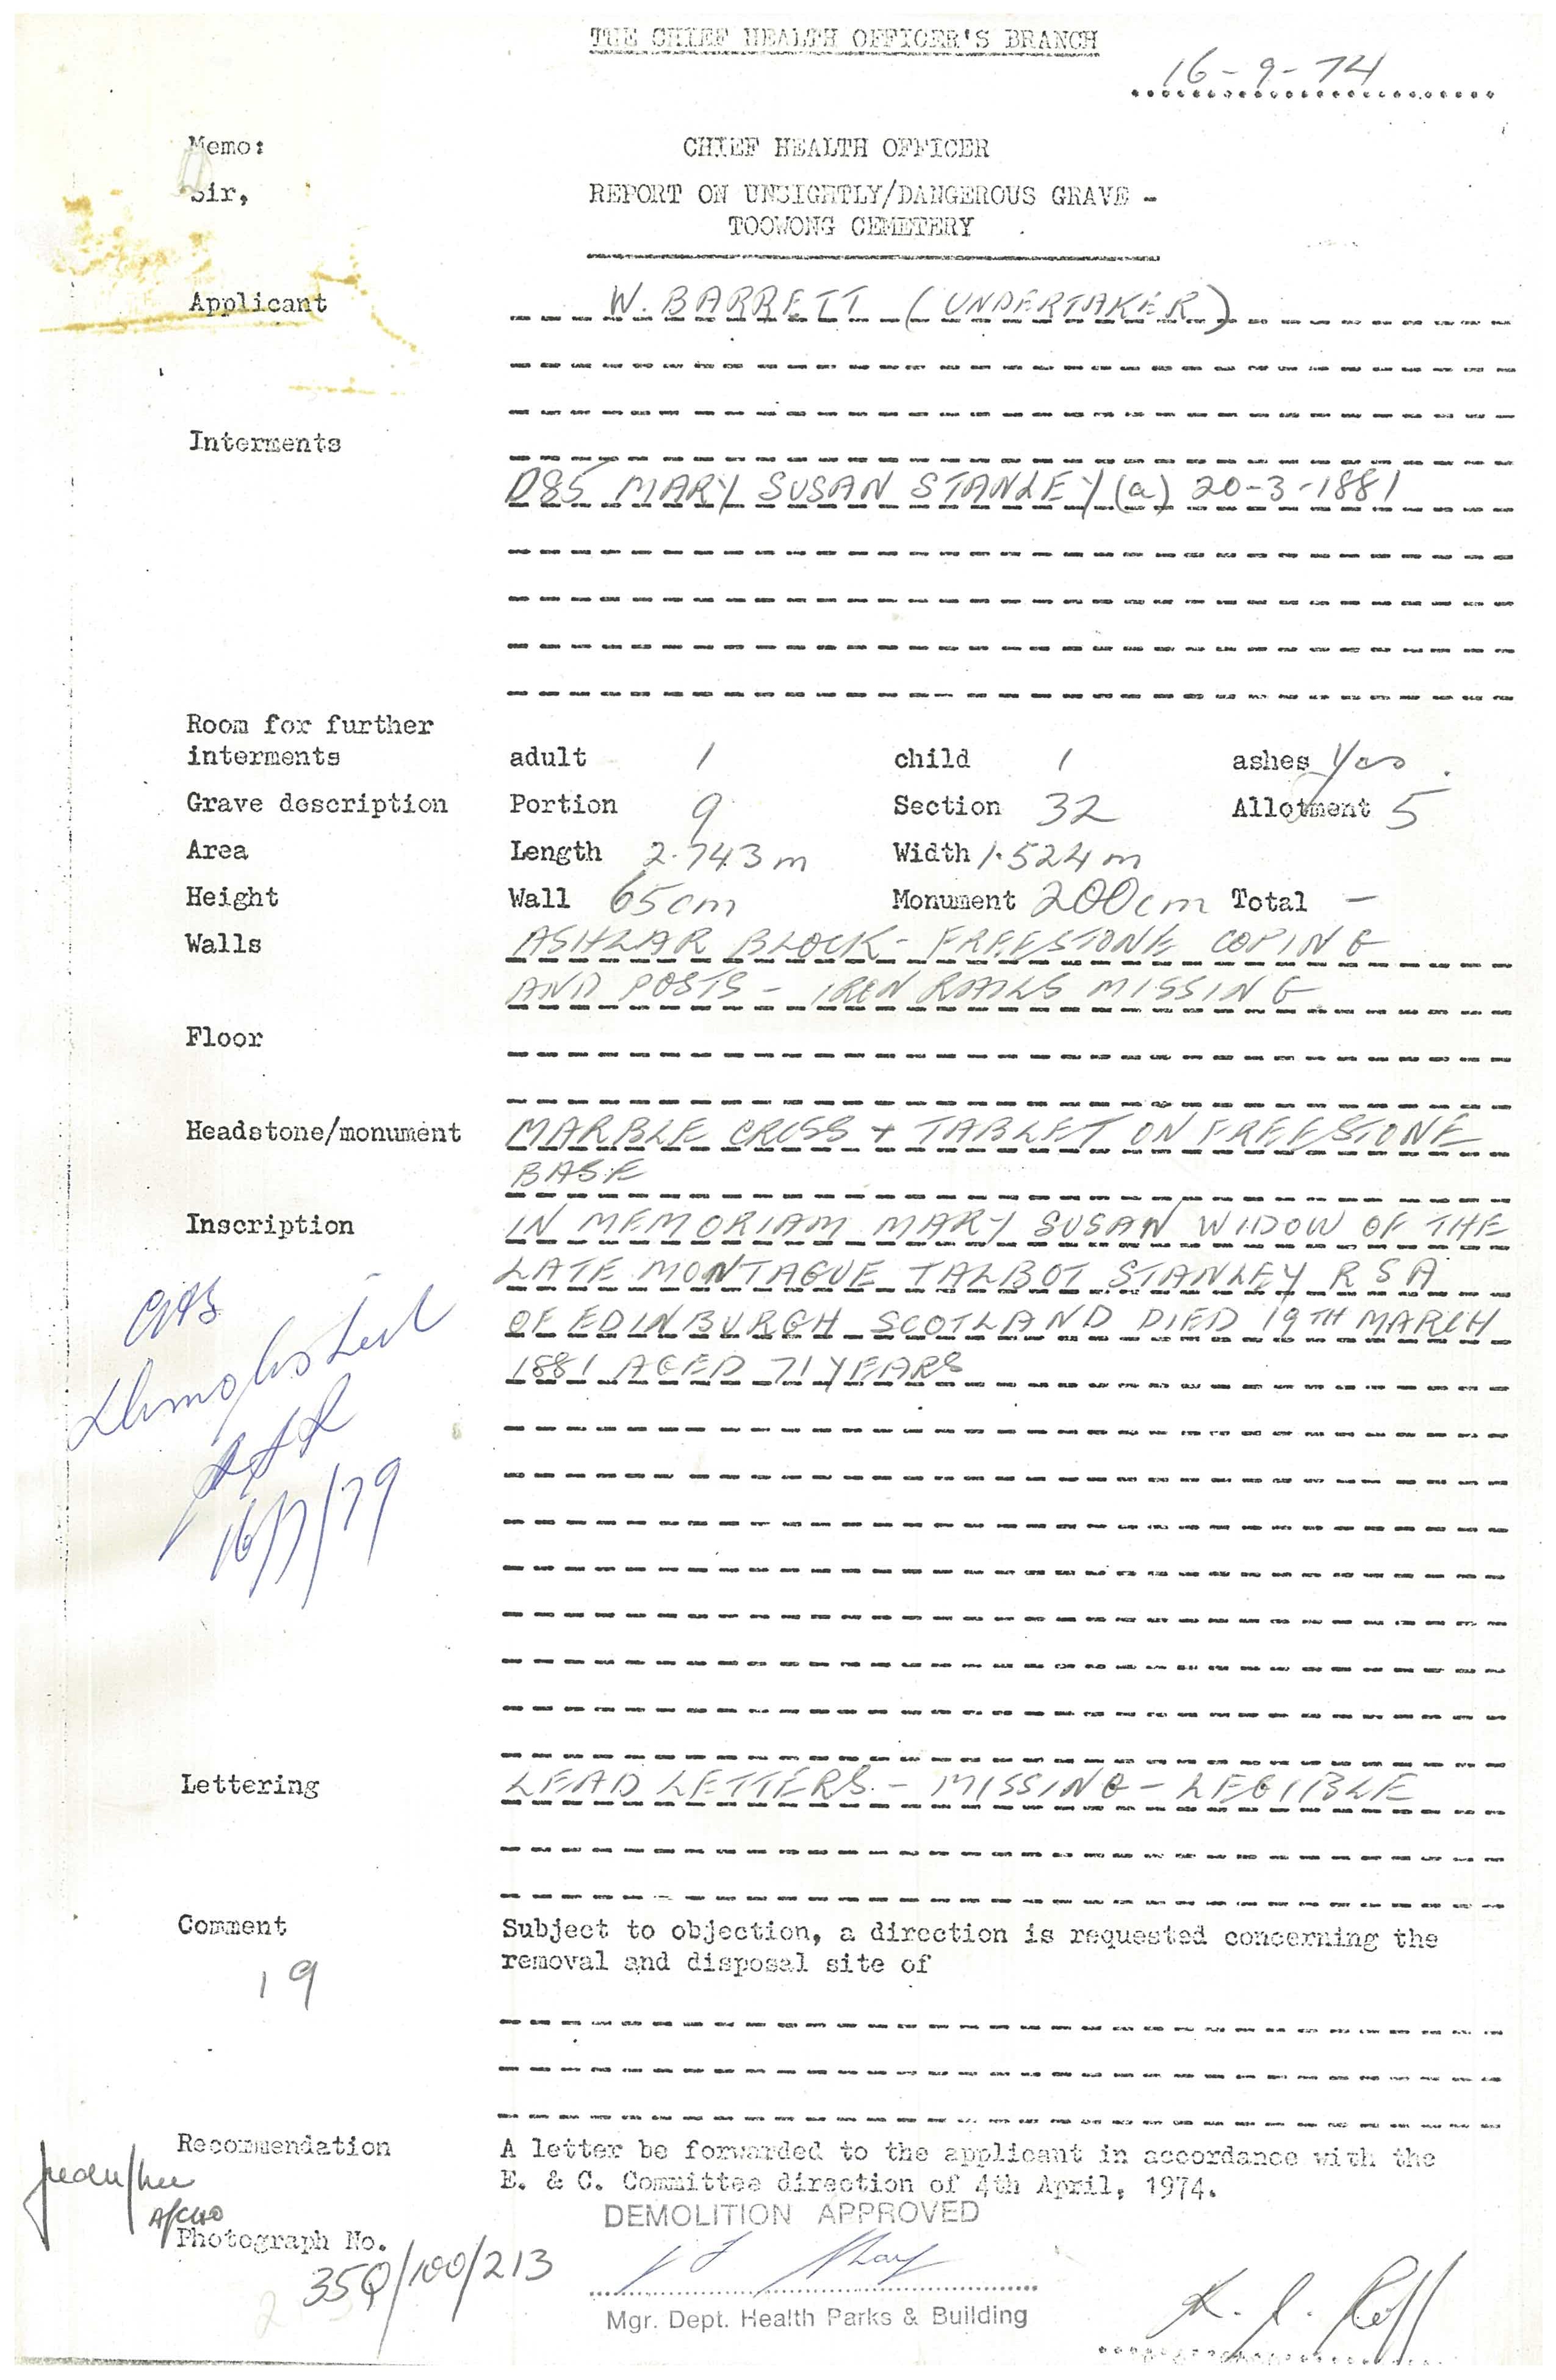 THE CHIEF HEALTH OFFICER'S BRANCH
16-9-74
Memo:
CHIEF HEALTH OFFICER
Sir,
REPORT ON UNSIGHTLY/DANGEROUS GRAVE -
TOOWONG CEMETERY
Applicant W. BARRETT (UNDERTAKER)
Interments
D85 MARY SUSAN STANLEY (a) 20-3-1881
Room for further
interments adult 1 child 1 ashes Yes.
Grave description Portion 9 Section 32 Allotment 5
Area Length 2.743m Width 1.524m
Height Wall 65cm Monument 200cm Total -
Walls ASHLAR BLOCK - FREESTONE COPING
AND POSTS - IRON RAILS MISSING
Floor
Headstone/monument MARBLE CROSS + TABLET ON FREESTONE
BASE
Inscription IN MEMORIAM MARY SUSAN WIDOW OF THE
LATE MONTAGUE TALBOT STANLEY R S A
OF EDINBURGH SCOTLAND DIED 19TH MARCH
1881 AGED 71 YEARS
16/7/79
Lettering LEAD LETTERS - MISSING - LEGIBLE
Comment Subject to objection, a direction is requested concerning the
removal and disposal site of
19
Recommendation A letter be forwarded to the applicant in accordance with the
E. & C. Committee direction of 4th April, 1974.
DEMOLITION APPROVED
A/CHO
Photograph No.
35Q/100/213
Mgr. Dept. Health Parks & Building